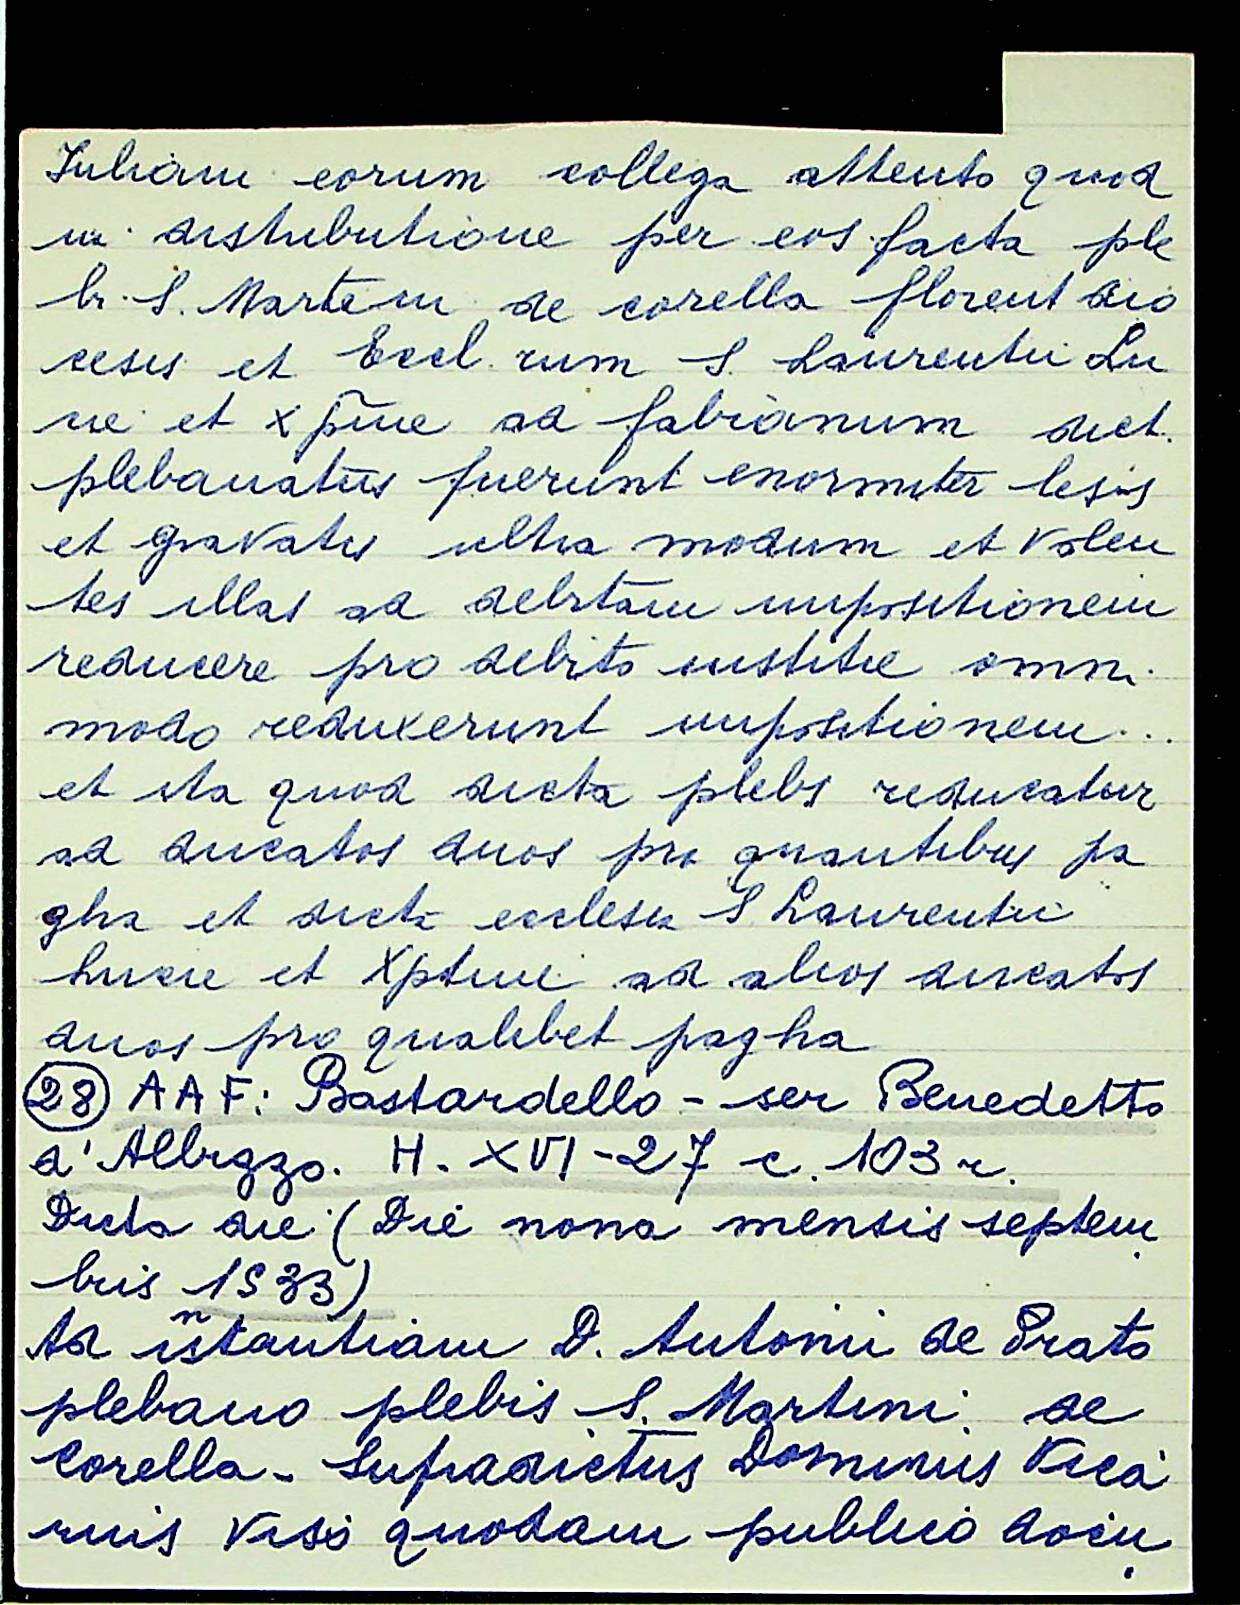 Iuliani eorum collega attento quod
in distributione per eos facta ple
bi S. Martini de corella florent dio
cesis et Eccl. rum S. Laurentii Lu
cie et xpine ad fabianum dict.
plebanatus fuerunt enormiter lesis
et gravatis ultra modum et volen
tes illas ad debitam impositionem
reducere pro debito iustitie omni
modo reduxerunt impositionem...
et ita quod dicta plebs reducatur
ad ducatos duos pro quantibus pa
gha et dicta ecclesia S Laurentii
Lucie et Xptine ad alios ducatos
duos pro qualibet pagha
(28) AAF: Bastardello - ser Benedetto
d'Albizzo. H. XVI-27 c. 103 r.
Dicta die (Die nona mensis septem
bris 1533)
Ad instantiam D. Antonii de Prato
plebano plebis S. Martini de
Corella - Supradictus Dominus Vica
rius viso quodam publico docu